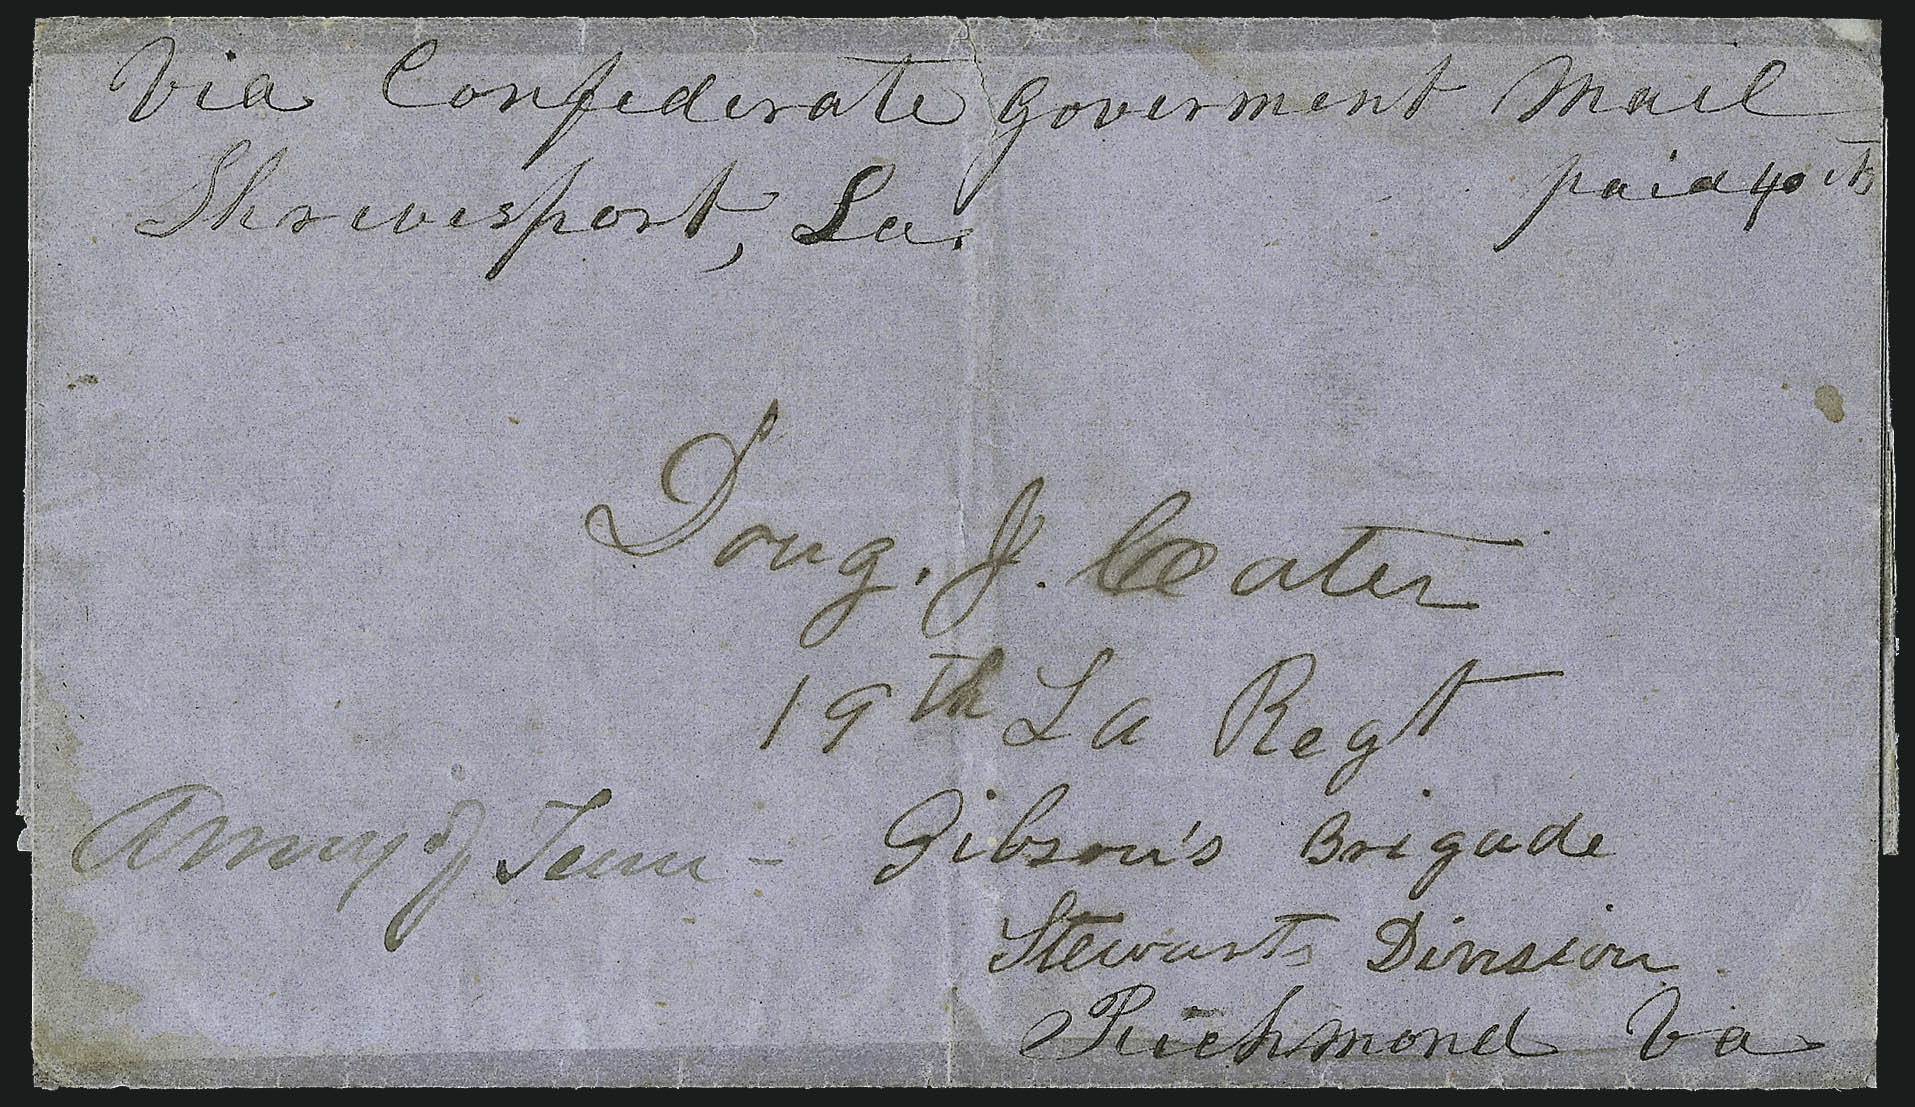 Via Confederate Goverment Mail
Shrevesport, La.
paid 40 cts
Doug. J. Cater
19th La Regt
Army of Tenn - Gibson's Brigade
Stewarts Division
Richmond Va